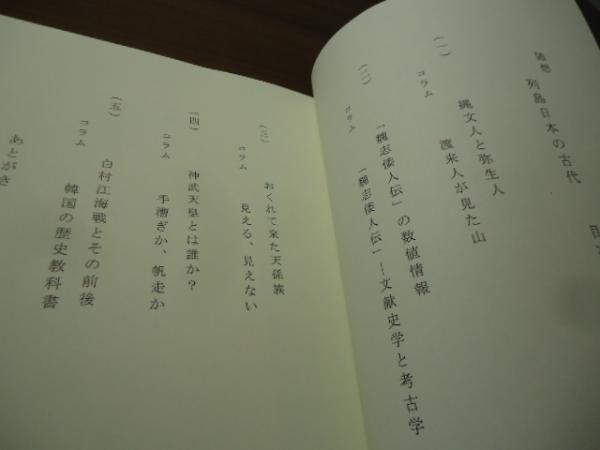 随想 列島日本の古代
目次
(一) 縄文人と弥生人
コラム 渡来人が見た山
(二) 「魏志倭人伝」の数値情報
コラム 「魏志倭人伝」―文献史学と考古学
(三) おくれて来た天孫族
コラム 見える、見えない
(四) 神武天皇とは誰か?
コラム 手漕ぎか、帆走か
(五) 白村江海戦とその前後
コラム 韓国の歴史教科書
あとがき